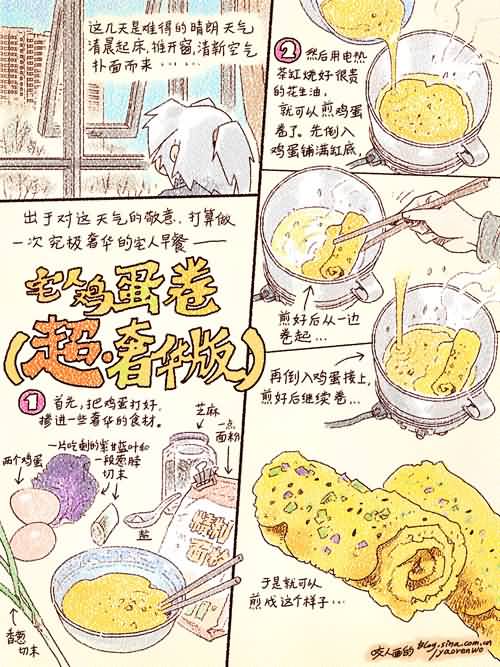 这几天是难得的晴朗天气
清晨起床,推开窗,清新空气
扑面而来……
出于对这天气的敬意,打算做
一次究极奢华的宅人早餐——
宅人鸡蛋卷
(超·奢华版)
1 首先,把鸡蛋打好,
掺进一些奢华的食材。
两个鸡蛋
一片吃剩的紫甘蓝叶和
一段葱脖
切末
芝麻
一点
面粉
盐
特制
面粉
香葱
切末
2 然后用电热
茶缸烧好很贵
的花生油,
就可以煎鸡蛋
卷了。先倒入
鸡蛋铺满缸底,
煎好后从一边
卷起…
再倒入鸡蛋接上,
煎好后继续卷…
于是就可以
煎成这个样子…
咬人画的
blog.sina.com.cn
/yaorenwo